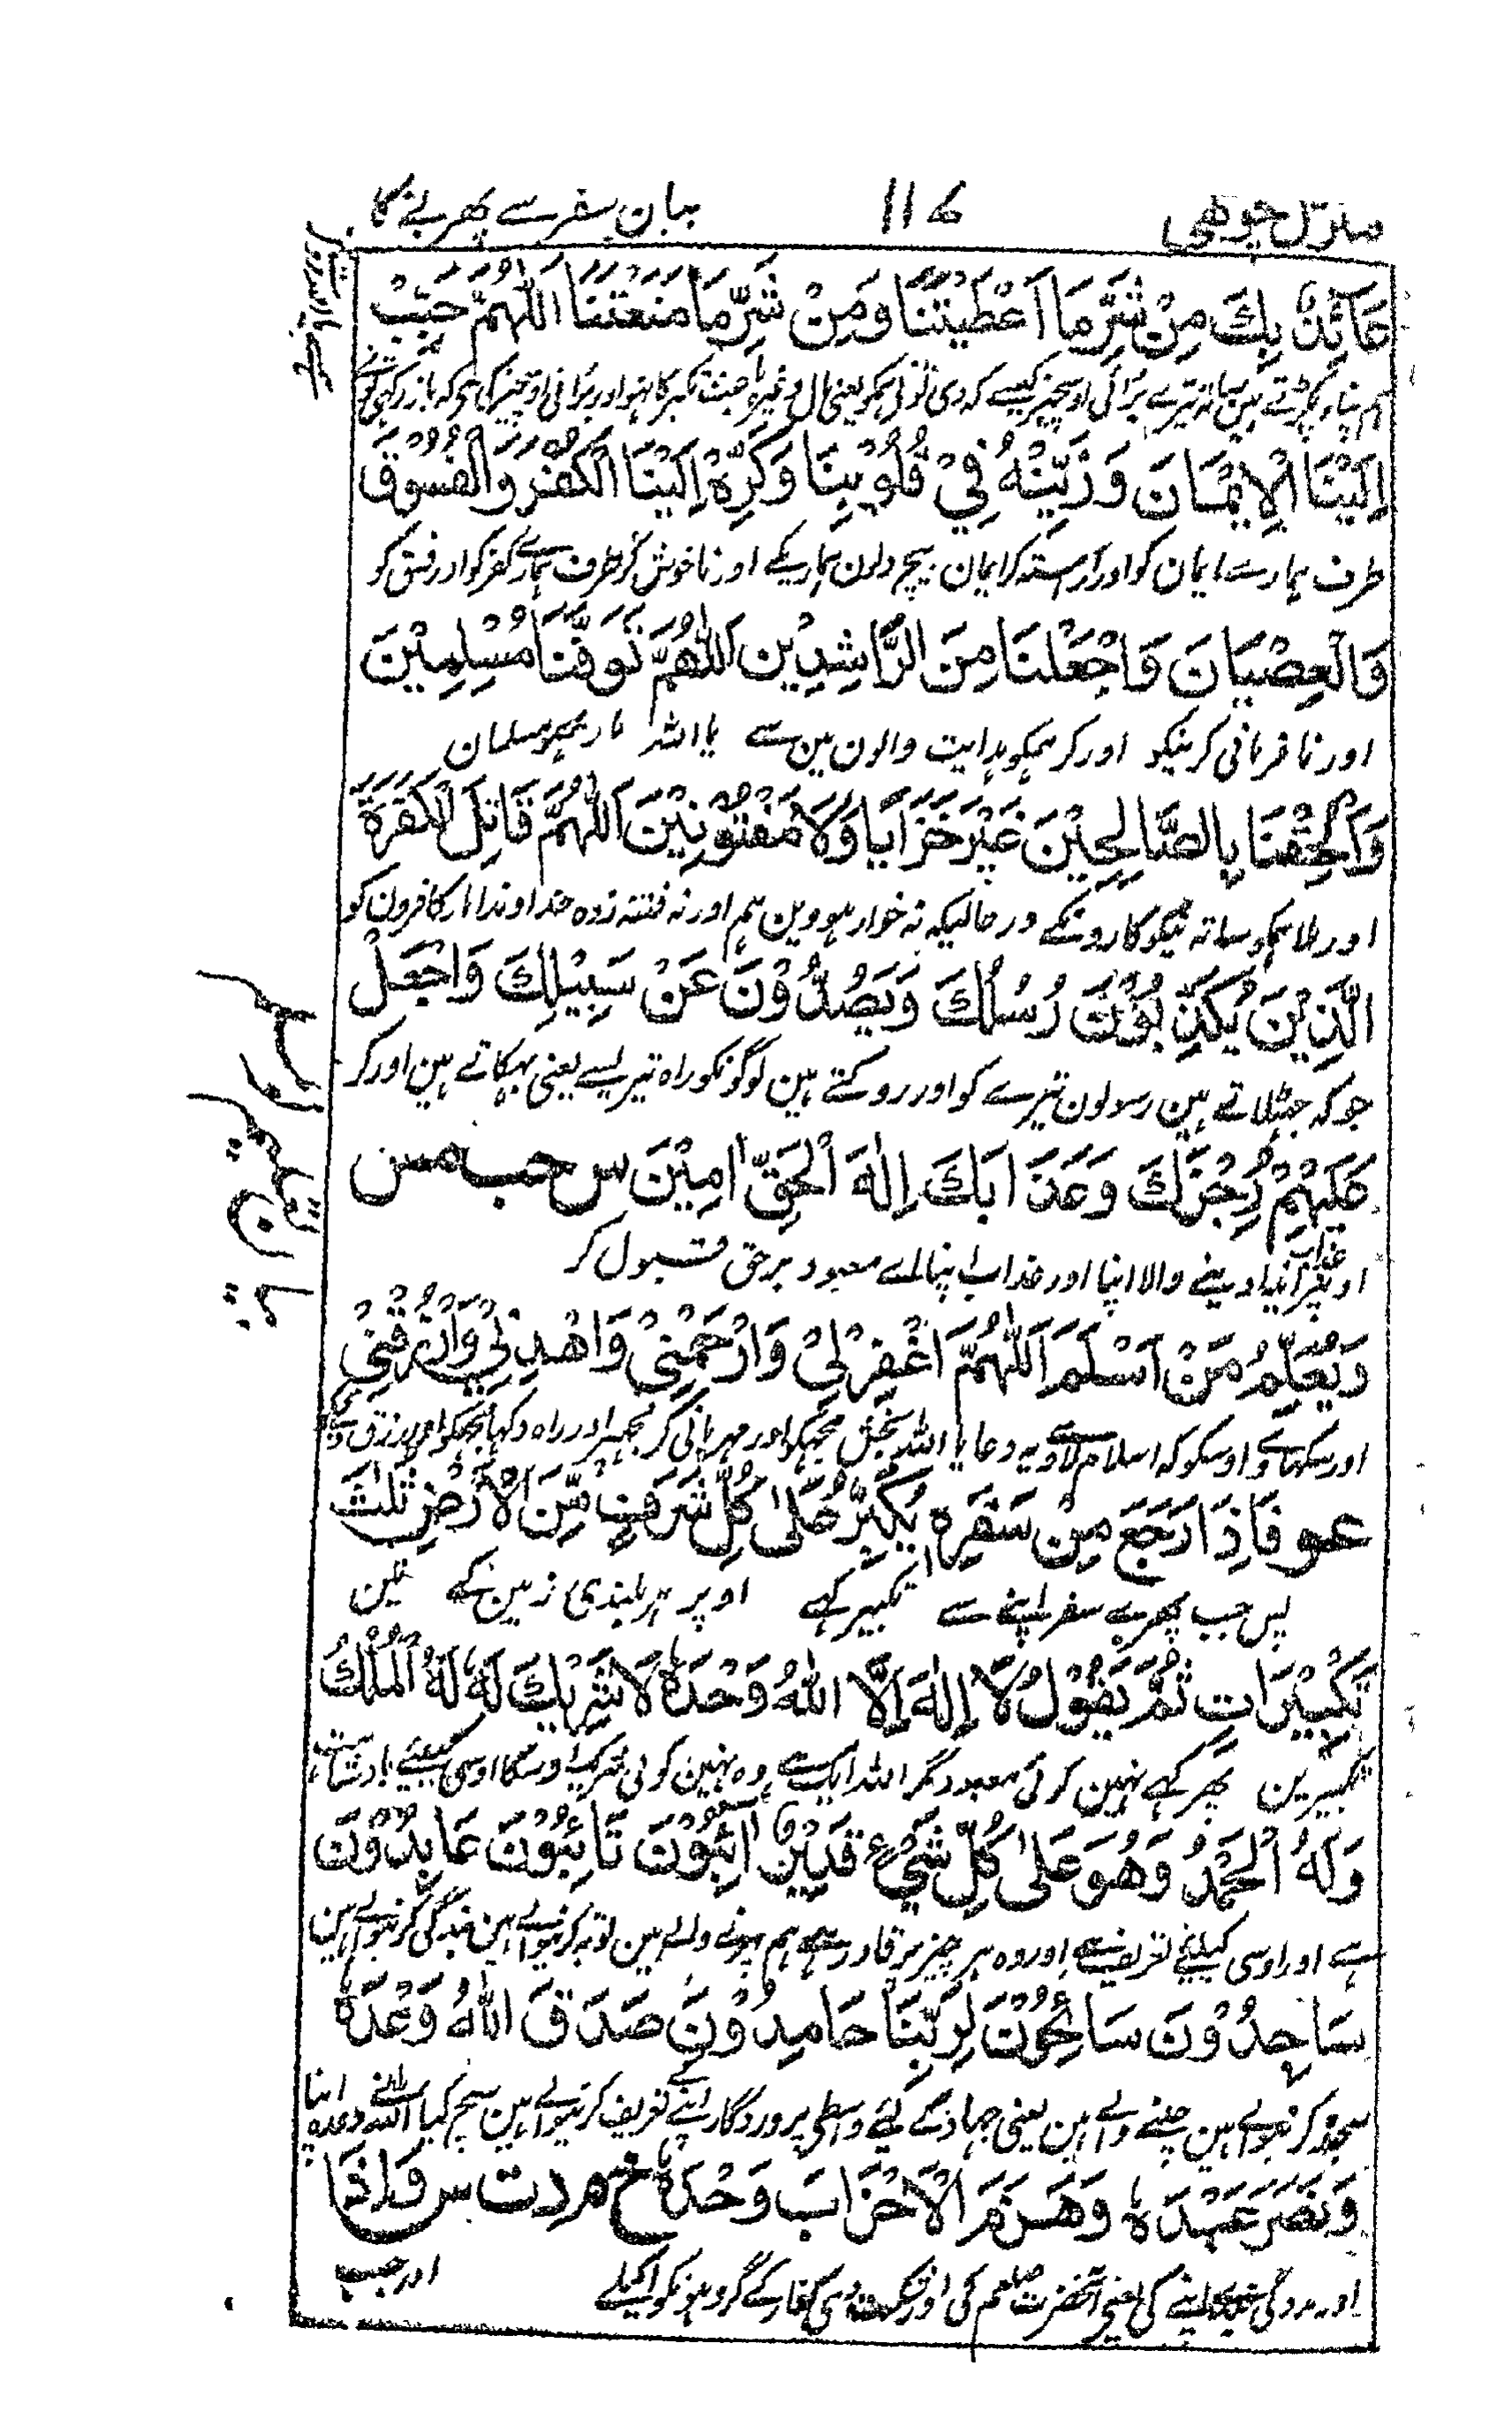 منزل چوتھی ١١٧ بیان سفر سے پھرنے کا
عَائِذٌ بِكَ مِنْ شَرِّ مَا اَعْطَيْتَنَا وَمِنْ شَرِّ مَا مَنَعْتَنَا اَللّٰهُمَّ حَبِّبْ
ہم پناہ پکڑتے ہین ساتہ تیرے برائی اوسچیز کیسے کہ دی تونی ہمکو یعنی مال وغیرہ باعث تکبر کا نہو اور برائی اوسچیز کی سی کہ باز رکھی تونے
اِلَيْنَا الْاِيْمَانَ وَزَيِّنْهُ فِيْ قُلُوْبِنَا وَكَرِّهْ اِلَيْنَا الْكُفْرَ وَالْفُسُوْقَ
طرف ہمارے ایمان کو اور آراستہ کر ایمان بیچ دلون ہماریکے اور ناخوش کر طرف ہمارے کفر کو اور فسق کو
وَالْعِصْيَانَ وَاجْعَلْنَا مِنَ الرَّاشِدِيْنَ اَللّٰهُمَّ تَوَفَّنَا مُسْلِمِيْنَ
اور نافرمانی کرنیکو اور کر ہمکو ہدایت والون مین سے یا اللہ مار ہمکو مسلمان
وَاَلْحِقْنَا بِالصَّالِحِيْنَ غَيْرَ خَزَايَا وَلَا مَفْتُوْنِيْنَ اَللّٰهُمَّ قَاتِلِ الْكَفَرَةَ
اور ملا ہمکو ساتہ نیکوکارونکے درحالیکہ نہ خوار ہووین ہم اور نہ فتنہ زدہ خداوندا مار کافرون کو
الَّذِيْنَ يُكَذِّبُوْنَ رُسُلَكَ وَيَصُدُّوْنَ عَنْ سَبِيْلِكَ وَاجْعَلْ
جو کہ جھٹلاتے ہین رسولون تیرے کو اور روکتے ہین لوگونکو راہ تیریسے یعنی بہکاتے ہین اور کر
عَلَيْهِمْ رِجْزَكَ وَعَذَابَكَ اِلٰهَ الْحَقِّ اٰمِيْنَ س حب مس
اوپر انپر عذاب ایذا دینے والا اپنا اور عذاب اپنا اے معبود برحق قبول کر
وَيُعَلِّمُ مَنْ اَسْلَمَ اَللّٰهُمَّ اغْفِرْ لِيْ وَارْحَمْنِيْ وَاهْدِنِيْ وَارْزُقْنِيْ
اور سکہاوے اوسکو کہ اسلام لاوے یہ دعا یا اللہ بخش مجہکو اور مہربانی کر مجہپر اور راہ دکہا مجہکو اور رزق دے مجہکو
عو فَاِذَا رَجَعَ مِنْ سَفَرِهٖ يُكَبِّرُ عَلٰى كُلِّ شَرَفٍ مِّنَ الْاَرْضِ ثَلٰثَ
پس جب پھرے سفر اپنے سے تکبیر کہے اوپر ہر بلندی زمین کے تین
تَكْبِيْرَاتٍ ثُمَّ يَقُوْلُ لَا اِلٰهَ اِلَّا اللهُ وَحْدَهٗ لَا شَرِيْكَ لَهٗ لَهُ الْمُلْكُ
تکبیرین پھر کہے نہین کوئی معبود مگر اللہ ایک ہے وہ نہین کوئی شریک اوسکا اوسی کیلیئے بادشاہت
وَلَهُ الْحَمْدُ وَهُوَ عَلٰى كُلِّ شَيْءٍ قَدِيْرٌ اٰئِبُوْنَ تَائِبُوْنَ عَابِدُوْنَ
ہے اور اوسی کیلیئے تعریف ہے اور وہ ہر چیز پر قادر ہے ہم پھرنے والے ہین توبہ کرنیوالے ہین بندگی کرنیوالے ہین
سَاجِدُوْنَ سَائِحُوْنَ لِرَبِّنَا حَامِدُوْنَ صَدَقَ اللهُ وَعْدَهٗ
سجدہ کرنیوالے ہین چلنے والے ہین یعنی جہاد کے لیئے واسطی پروردگار اپنے کے تعریف کرنیوالے ہین سچ کیا اللہ نے وعدہ اپنا
وَنَصَرَ عَبْدَهٗ وَهَزَمَ الْاَحْزَابَ وَحْدَهٗ خ م د ت س وَاِذَا
اور مدد کی بندے اپنے کی یعنی آنحضرت صلعم کی اور شکست دی کفار کے گروہونکو اکیلے اور جب